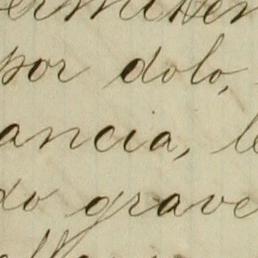 por dolo,
ancia, le
do grave